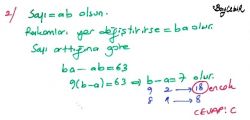 2/ Sayı=ab olsun.
Rakamları yer değiştirirse = ba olur.
Sayı arttığına göre
ba - ab = 63
9(b-a) = 63 ⇒ b-a = 7 olur.
9 2 → 18 en çok
8 1 → 8
CEVAP: C